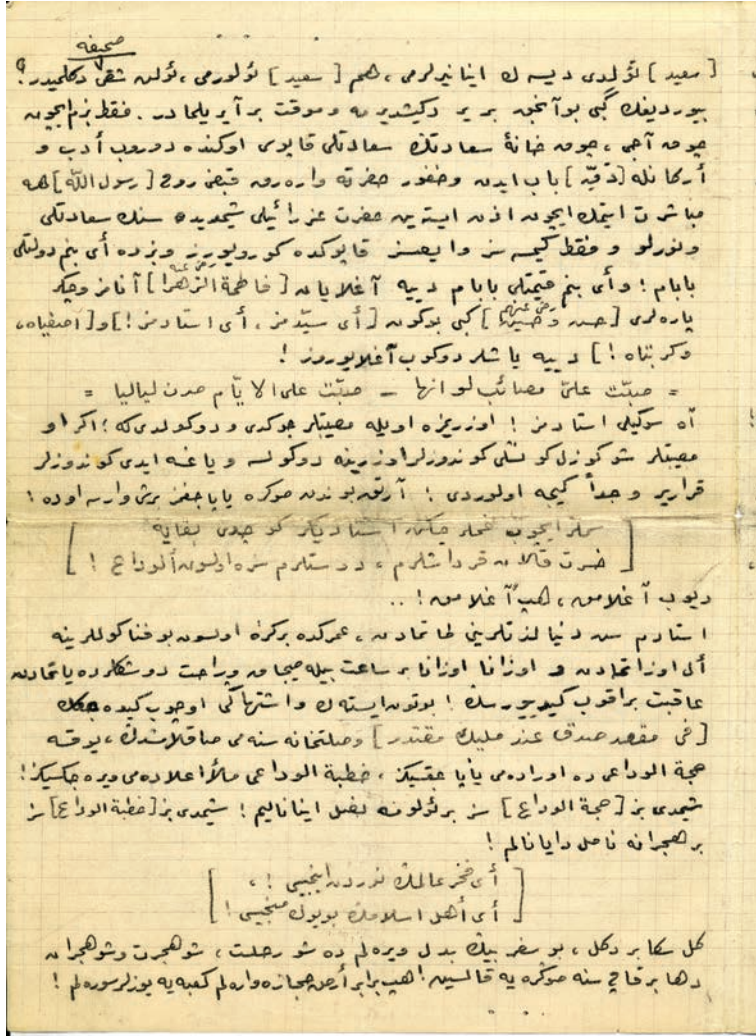 صحيفه
[سعيد] ئولدى ديسه ك اينانيرلرمى ، هم [سعيد] ئولورمى ، ئولن شقى دكلميدر؟
بيورديغك كبى بو آنجق بر ير دكيشديرمه و موقت بر آيريلمادر . فقط بزم ايچون
چوق آجى ، چوق خانهٔ سعادتك سعادتلى قاپوسى اوكنده دوروب أدب و
أركانله باب ايدن و حضور حضرته واره رق قبض روح [رسول الله] هه
مباشرت ايتمك ايچون اذن ايستين حضرت عزرائيلى شيمديده سنك سعادتلى
و نورلو و فقط كيمسه سز قاپوكده كورويورز و بزده أى بنم دولتلى
بابام ! و أى بنم قيمتلى بابام دييه آغلايان [فاطمة الزهرا رضى عنه] آنامز و جكر
پاره لرى [حسن و حسين رضى عنهما] كبى بوكون [أى سيدمز ، أى استادمز !] و [اصفياه ،
وكربتاه !] دييه ياشلر دوكوب آغلايوروز !
= صبّت علىّ مصائب لو انها – صبّت على الايّام صرن لياليا =
آه سوكيلى استادمز ! اوزريمزه اويله مصيبتلر چوكدى و دوكولدى كه ؛ اكر او
مصيبتلر شو كوزل كونشلى كوندوزلر اوزرينه دوكولسه و ياغسه ايدى كوندوزلر
قرارير و جداً كيجه اولوردى ! آرتق بوندن صوكره ياپاجغمز برشى وارسه اوده :
[سملر ايچوب غملر چكن استاديكز كوچدى بقايه
صرت قالان قرداشلرم ، دوستلرم سزه اولسون ألوداع !]
ديوب آغلامق ، هپ آغلامق ! ..
استادم سن دنيا لذتلرينى طاتمادن ، عمركده بركره اولسون بو فنا كوللرينه
ألى اوزاتمادن و اوزانا اوزانا بر ساعت بيله صيجاق و راحت دوشكلرده ياتمادن
عاقبت براقوب كيدييورسك ! بوتون ايسته ك و اشتهاكى اوچوب كيده جكك
[فى مقعد صدق عند مليك مقتدر] وصلتخانه سنه مى صاقلامشدك ، يوقسه
حجة الوداعى ده اوراده مى ياپاجقسيكز ، خطبة الوداعى ملأ اعلاده مى ويره جكسيكز!
شيمدى بز [حجة الوداع] سز بر ئولومه نصل اينانالم ! شيمدى بز [خطبة الوداع] سز
بر هجرانه ناصل دايانالم !
[أى فخر عالمك نوردن اينجيسى ! ،
أى أهل اسلامك بويوك منجيسى !]
كل سكا بر دكل ، بو سفر بيك بدل ويره لم ده شو رحلت ، شو هجرت و شو هجران
دها بر قاچ سنه صوكره يه قالسين ! هپ برابر أرض حجازه واره لم كعبه يه يوزلر سوره لم !